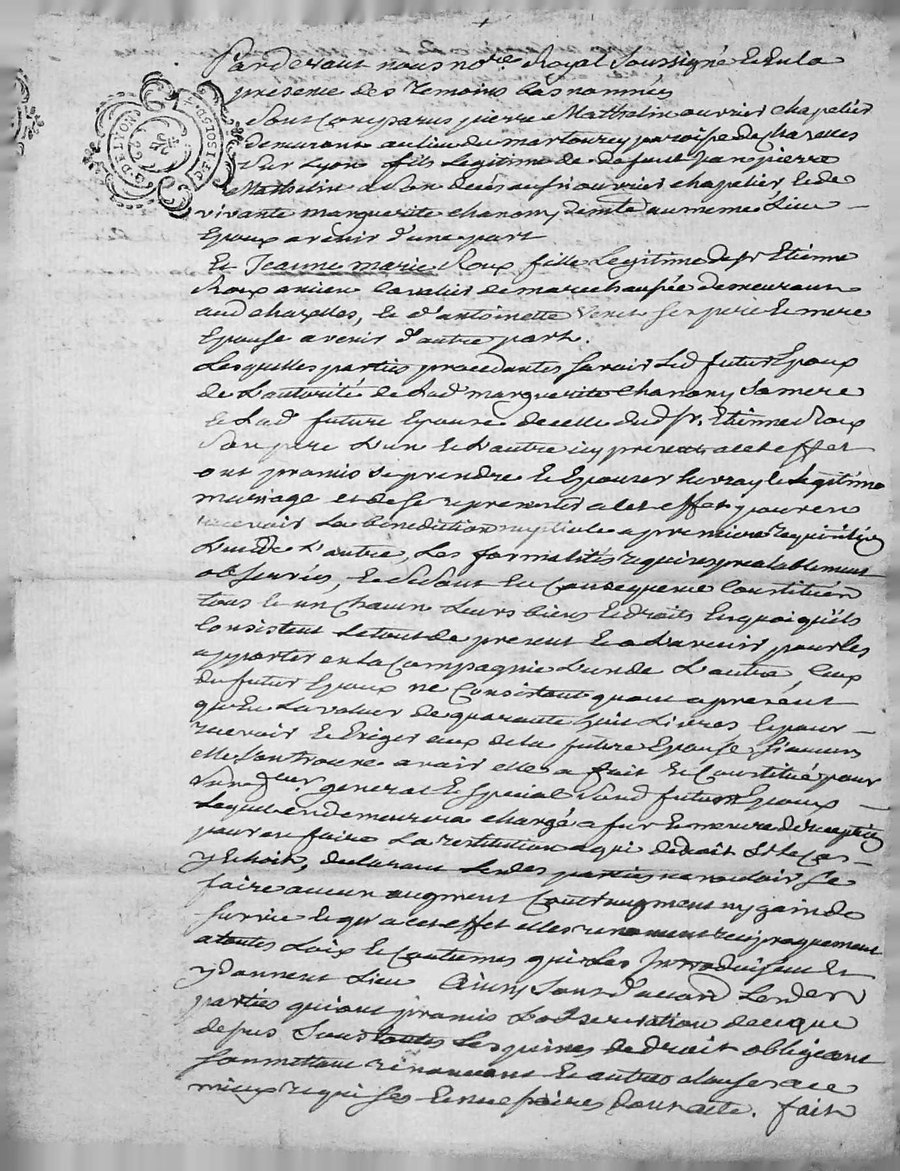 Pardevant nous no.re Royal Soussigné Et En la
presence des temoins bas nommés
Sont Comparus pierre Mathelin ouvrier chapelier
demeurant au lieu du martouray paroisse de chazelles
Sur Lyon fils Legitime de defunt Jean pierre
Mathelin a Son decés aussi ouvrier chapelier Et de
vivante marguerite chanony demte au meme Lieu
Epoux avenir d'une part
Et Jeanne marie Roux fille Legitime de Sr Etienne
Roux ancien Cavalier de marechaussée demeurant
aud chazelles, Et d'antoinette Ses pere Et mere
Epouse avenir d'autre part.
Lesquelles parties procedantes Savoir Led futur Epoux
de L'autorité de Lad marguerite Chanony Sa mere
Et Lad future Epouse de celle dud Sr. Etienne Roux
Son pere L'un Et L'autre icy presents a cet Effet
ont promis Se prendre Et Epouser En vray Et Legitime
mariage et de Se representer a cet Effet pour En
recevoir La benediction nuptiale a premiere requisition
L'un de L'autre, Les formalités requises prealablement
observées, Et Se Sont En Consequence Constitués
tous Et un Chacun Leurs biens Et droits En quoi qu'ils
Consistent Le tout de present Et a L'avenir pour Les
apporter en La Compagnie L'un de L'autre, Ceux
du futur Epoux ne Consistant quant apresent
qu'En La valeur de quarante huit Livres Et pour
recevoir Et Exiger ceux de La future Epouse Si aucuns
elle Sen trouve avoir elle a fait Et Constitué pour
Son general Et Special Sond futur Epoux
Lequel en demeurera chargé a fur Et mesure de reception
pour en faire La restitution a qui de droit Si Le Cas
y Echoit, declarant Lesdes parties ne vouloir Se
faire aucun augment Contraugment ny gain de
Survie Et qu'a cet effet elles renoncent reciproquement
a toutes Loix Et Coutumes qui Les Introduisent Et
y donnent Lieu Ainsy Sont d'accord Lesdes
parties qui ont promis L'observation de ce que
dessus Sous toutes Les peines de droit obligeant
Soumettant renonceant Et autres clauses a ce
mieux requises Et necessaires dont acte. fait
G. DE LYON
DEUX SOLS